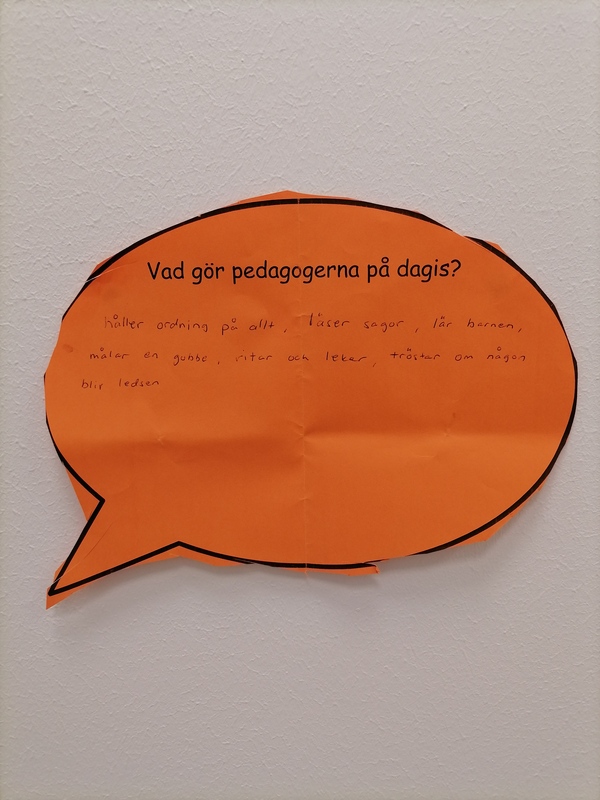 Vad gör pedagogerna på dagis?
håller ordning på allt, läser sagor, lär barnen,
målar en gubbe, ritar och leker, tröstar om någon
blir ledsen